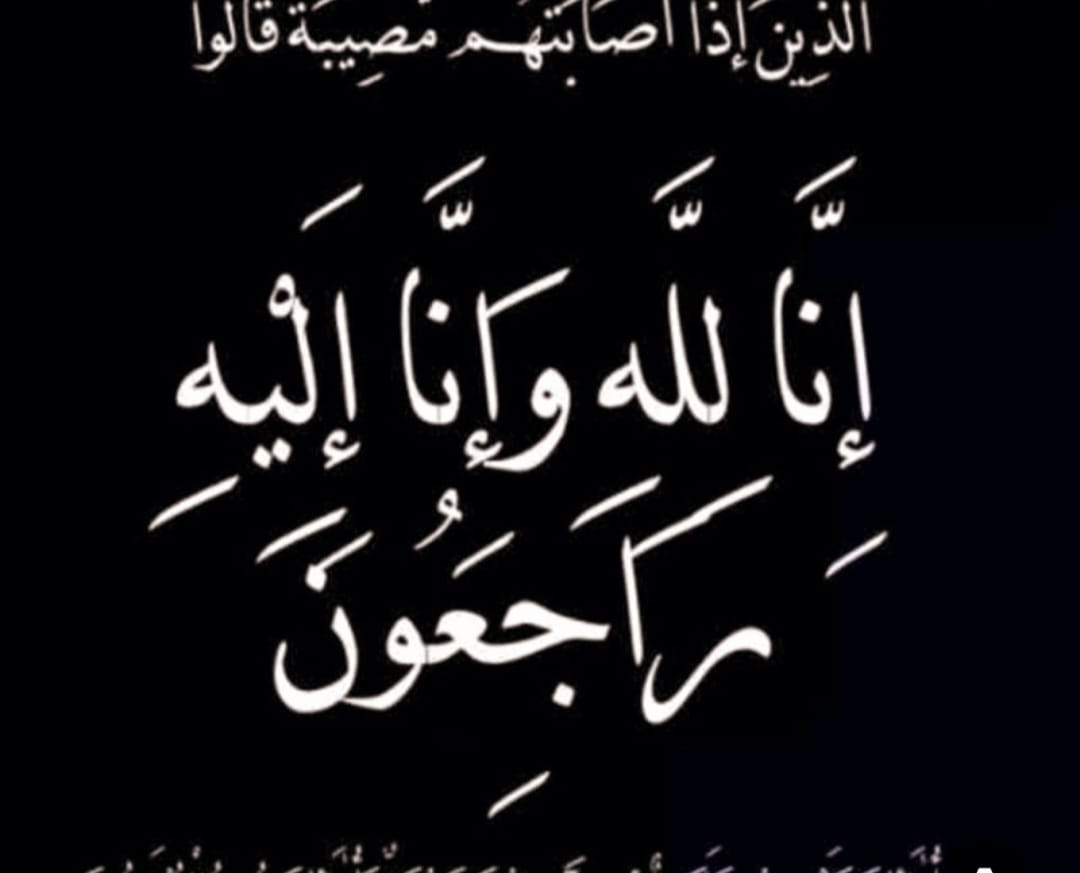 الَّذِينَ إِذَا أَصَابَتْهُم مُّصِيبَةٌ قَالُوا
إِنَّا لِلَّهِ وَإِنَّا إِلَيْهِ
رَاجِعُونَ